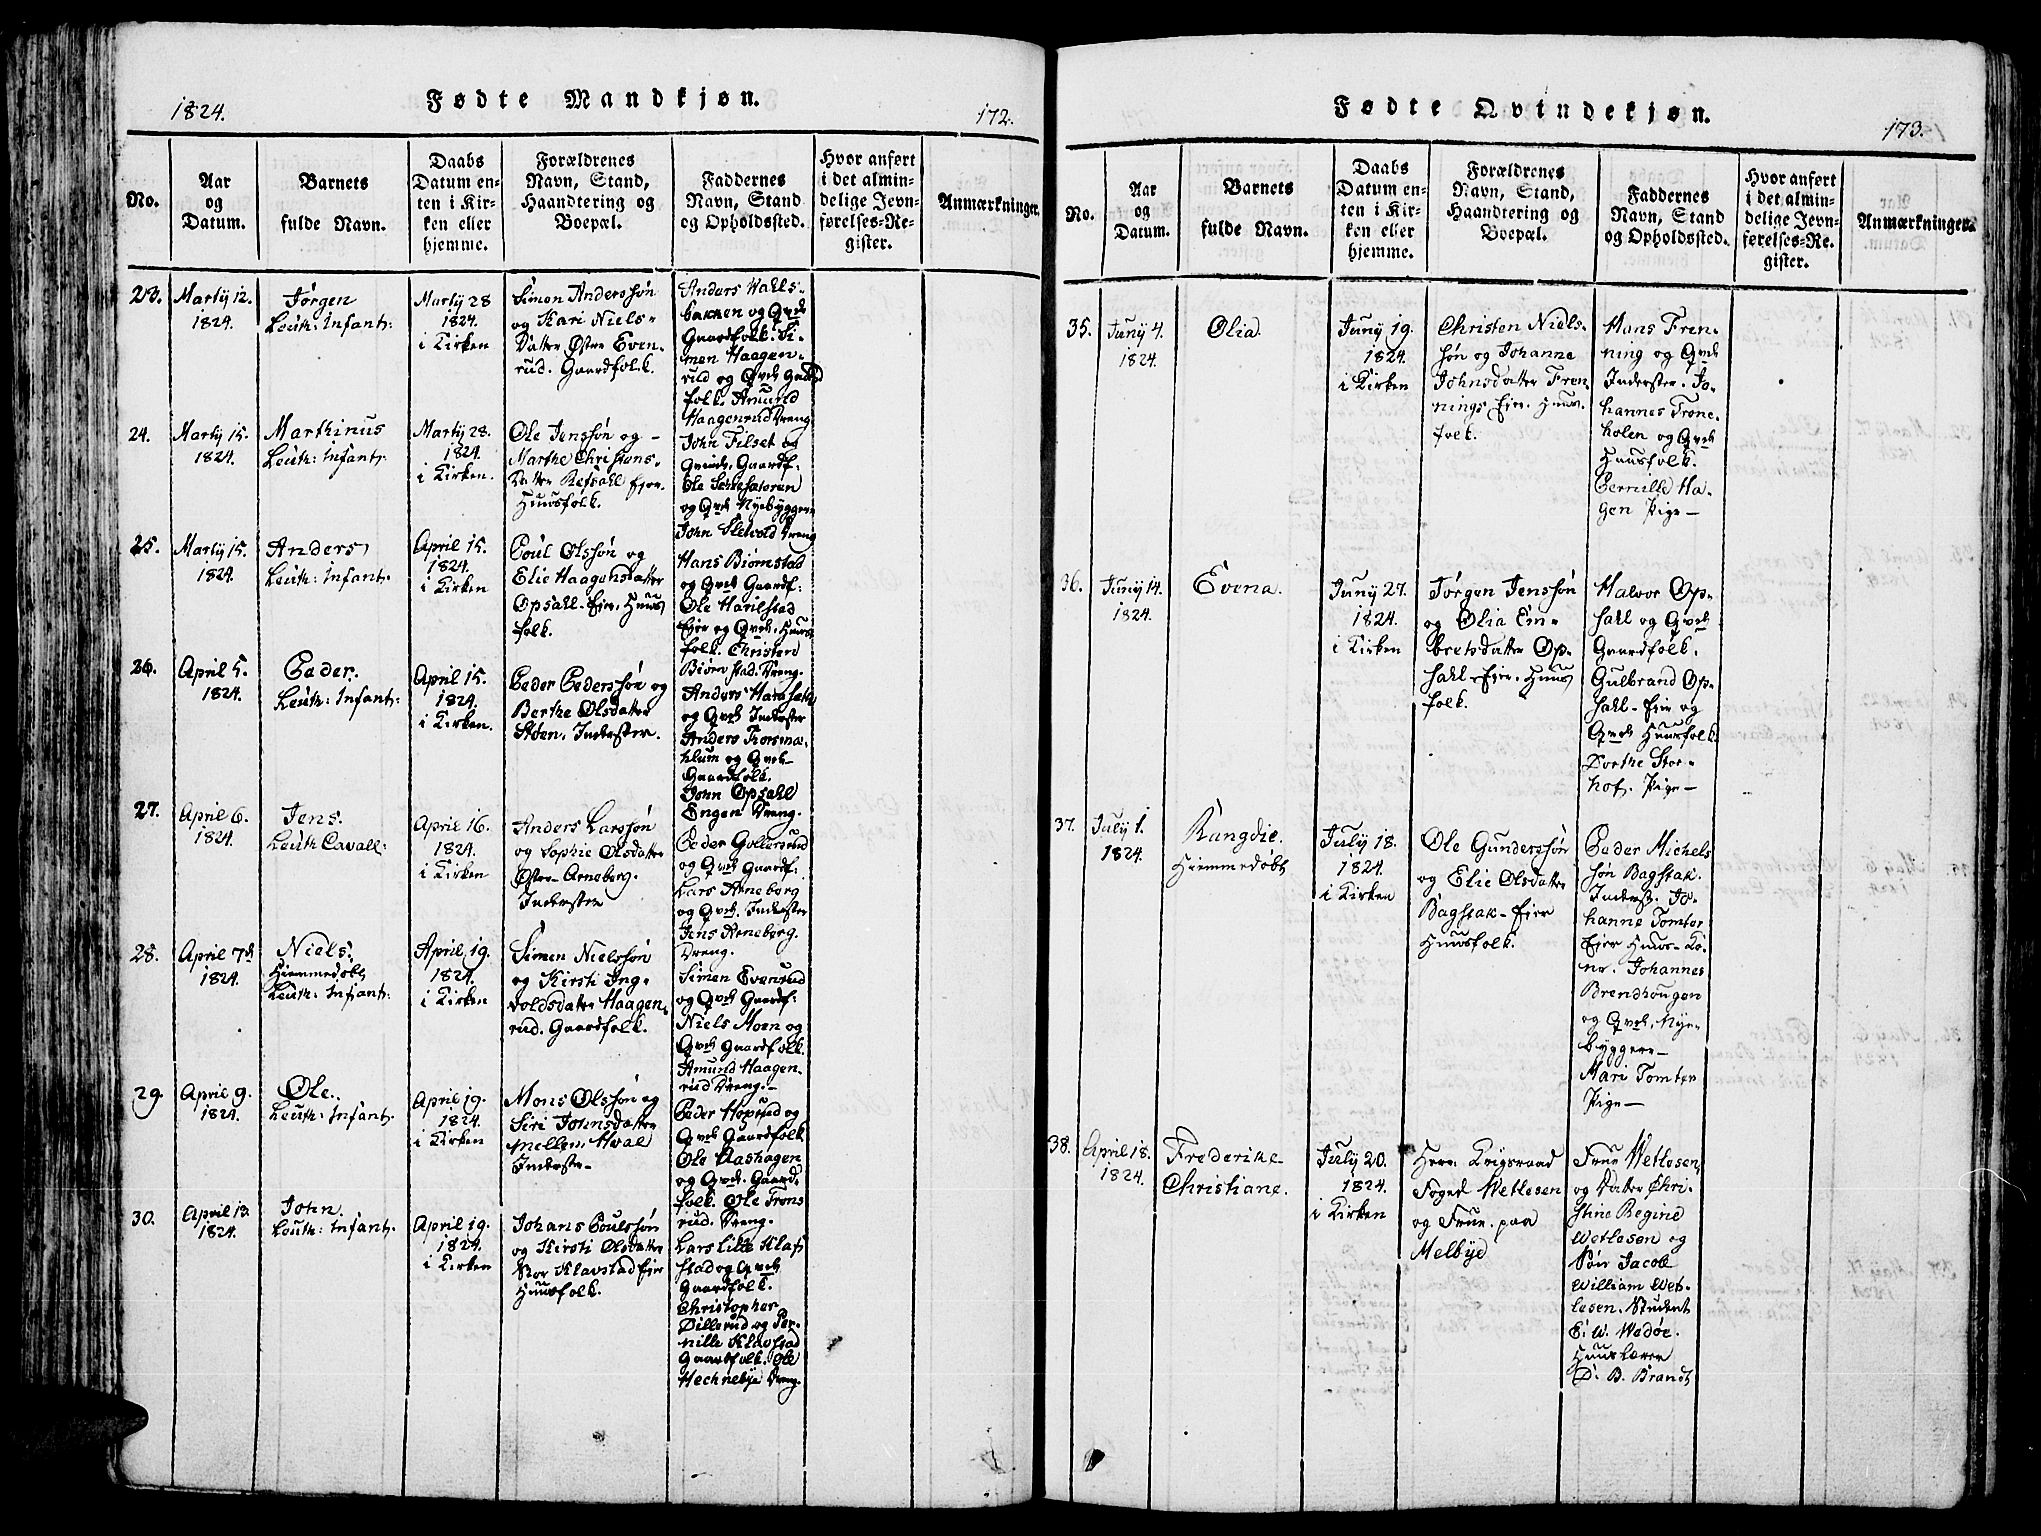 1824.
Fødte Mandkjøn.
172.
No.
Aar
og
Datum.
Barnets
fulde Navn.
Daabs
Datum en-
ten i Kir-
ken eller
hjemme.
Forældrenes
Navn, Stand,
Haandtering og
Boepæl.
Faddernes
Navn, Stand
og Opholdssted.
Hvor anført
i det almin-
delige Jevn-
førelses-Re-
gister.
Anmærkninger.
23.
Martÿ 12.
1824.
Jørgen
Leuth: Infant:
Martÿ 28
1824.
i Kirken
Simen Anderssøn
og Kari Niels-
Datter Østre Even-
rud. Gaardfolk.
Anders Hahls-
bakken og Qvd
Gaardfolk. Si-
men Haagen-
rud og Qvd Gaard
folk. Amund
Haagenrud Dreng
24.
Martÿ 15.
1824.
Marthinus
Leuth: Infant:
Martÿ 28.
1824.
i Kirken.
Ole Jenssøn og -
Marthe Christians-
Datter Refsahl Ejer.
Huusfolk.
John Filset og
Qvinde. Gaardf:
Ole
og Qvd Nyebyggere
John Sletvold Dreng
25.
Martÿ 15.
1824.
Anders
Leuth: Infant:
April 15.
1824.
i Kirken
Poul Olssøn og
Elie Haagensdatter
Opsahl-Eier. Huus
folk.
Hans Biørnstad
og Qvd Gaardf:
Ole Harilstad
Ejer og Qvd. Huus
folk. Christen
Biørnstad. Dreng.
26.
April 5.
1824.
Peder.
Leuth: Infant:
April 15.
1824.
i Kirken.
Peder Pederssøn og
Berthe Olsdatter
Støen. Inderster.
Anders Harasæth
og Qvd Inderster
Anders Korsmæ-
hlum og Qvd-
Gaardfolk.
John Opsahl
Engen Dreng.
27.
April 6.
1824.
Jens.
Leuth Cavall:
April 16.
1824.
i Kirken
Anders Larssøn
og Sophie Olsdatter
Østre-Arneberg.
Inderster
Peder Gollersrud
og Qvd Gaardf:
Lars Arneberg
og Qvd. Inderster
Jens Arneberg.
Dreng.
28.
April 7de
1824.
Niels.
Hiemmedøbt
Leuth: Infant:
April 19.
1824.
i Kirken
Simen Nielssøn
og Kirsti Ing-
voldsdatter Haagen-
rud. Gaardfolk.
Simen Evenrud
og Qvd Gaardf:
Niels Moen og
Qvd Gaardfolk.
Amund Haagen-
rud Dreng.-
29.
April 9.
1824.
Ole.
Leuth: Infant:
April 19.
1824.
i Kirken
Mons Olssøn og
Siri Johnsdatter
Mellem Hval
Inderste-
Peder Hoprud og
Qvd Gaardfolk
Ole Aashagen
og Qvd. Gaard-
folk. Ole Frons
rud. Dreng.
30.
April 13.
1824.
John.
Leuth: Infant:
April 19.
1824.
i Kirken
Johans Poulssøn
og Kirsti Olsdatter
Nor Klavstad Ejer
Huusfolk.
Lars Lille Klaf
stad og Qvd
Gaardfolk.
Christopher
Dillerud og Per-
nille Klavstad
Gaardfolk. Ole
Hechnebye Dreng.
Fødte Qvindekjøn.
173.
No.
Aar
og
Datum.
Barnets
fulde Navn.
Daabs
Datum en-
ten i Kir-
ken eller
hjemme.
Forældrenes
Navn, Stand,
Haandtering og
Boepæl.
Faddernes
Navn, Stand
og Opholdssted.
Hvor anført
i det almin-
delige Jevn-
førelses-Re-
gister.
Anmærkninger.
35.
Juny 4.
1824.
Olia
Juny 19.
1824.
i Kirken
Christen Niels-
søn og Johanne
Johnsdatter Fren-
nings Ejer. Huus.
folk.
Hans Fren-
ning og Qvd
Inderster. Jo-
hannes Trone-
holen og Qvd
Huusfolk.
Pernille Ha-
gen Pige-
36.
Juny 14.
1824.
Evena.
Juny 27.
1824.
i Kirken
Jørgen Jenssøn
og Olia Ein-
bretsdatter Op-
sahl-Ejer. Huus
folk.
Halvor Op-
sahl og Qvd
Gaardfolk.
Gulbrand Op-
sahl-Eje og
Qvd Huusfolk.
Dorthe Stor-
hof. Pige-
37.
July 1.
1824.
Rangdie.
Hiemmedøbt
July 18.
1824.
i Kirken
Ole Gunderssøn
og Elie Olsdatter
Bagstak-Ejer
Huusfolk.
Peder Michels
søn Bagstak.
Inderst. Jo-
hanne Tomter
Ejer Huus-Ko-
ne. Johannes
Brendhougen
og Qvd. Nye-
byggere-
Mari Tomter
Pige-
38.
April 18.
1824.
Frederike
Christiane.
July 20.
1824.
i Kirken
Herr Krigsraad
Foged Wetlesen
og Frue. paa
Melbye
Frue Wetlesen
og Datter Chri-
stine Regine
Wetlesen og
Søn Jacob
William Wet-
lesen. Student
E. W. Wadøe.
Huuslærer
D. B. Brandt